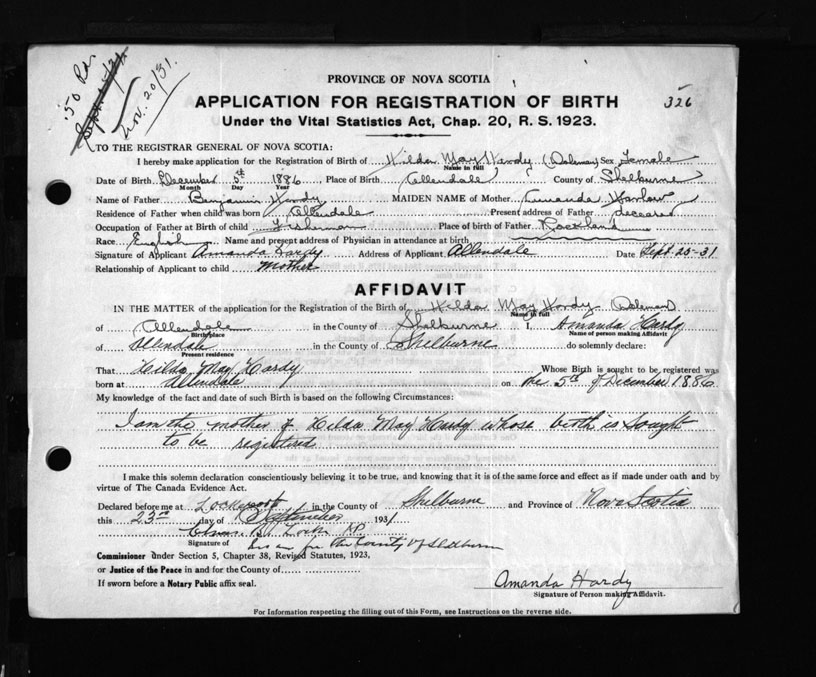 .50 Pd.
Nov. 20/31.
PROVINCE OF NOVA SCOTIA
APPLICATION FOR REGISTRATION OF BIRTH 326
Under the Vital Statistics Act, Chap. 20, R. S. 1923.
TO THE REGISTRAR GENERAL OF NOVA SCOTIA:
I hereby make application for the Registration of Birth of Hilda May Hardy Sex Female
Name in full
Date of Birth December 5th 1886 Place of Birth Allendale County of Shelburne
Month Day Year
Name of Father Benjamin Hardy MAIDEN NAME of Mother Amanda Harlow
Residence of Father when child was born Allendale Present address of Father deceased
Occupation of Father at Birth of child Fisherman Place of birth of Father Rockland
Race English Name and present address of Physician in attendance at birth
Signature of Applicant Amanda Hardy Address of Applicant Allendale Date Sept. 23-31
Relationship of Applicant to child Mother
AFFIDAVIT
IN THE MATTER of the application for the Registration of the Birth of Hilda May Hardy
Name in full
of Allendale in the County of Shelburne I, Amanda Hardy
Birthplace Name of person making Affidavit
of Allendale in the County of Shelburne do solemnly declare:
Present residence
That Hilda May Hardy Whose Birth is sought to be registered was
born at Allendale on the 5th of December 1886
My knowledge of the fact and date of such Birth is based on the following Circumstances:
I am the mother of Hilda May Hardy whose birth is sought
to be registered
I make this solemn declaration conscientiously believing it to be true, and knowing that it is of the same force and effect as if made under oath and by
virtue of The Canada Evidence Act.
Declared before me at Lockeport in the County of Shelburne and Province of Nova Scotia
this 23rd day of September 1931
Locke JP
Signature of
in an for the County of Shelburne
Commissioner under Section 5, Chapter 38, Revised Statutes, 1923,
or Justice of the Peace in and for the County of
If sworn before a Notary Public affix seal.
Amanda Hardy
Signature of Person making Affidavit.
For Information respecting the filling out of this Form, see Instructions on the reverse side.